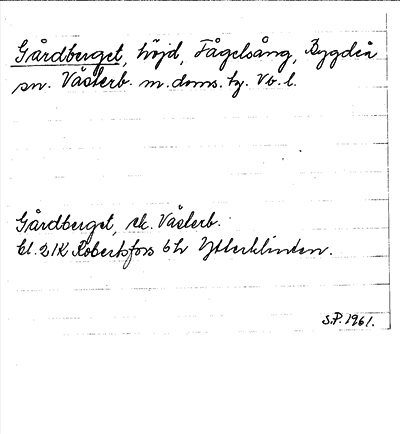 Gårdberget, höjd, Fågelsång, Bygdeå
sn. Västerb. m. doms. tg. Vb. l.
Gårdberget, ek. Västerb.
bl. 21K Robertsfors 6 h Ytterklinten.
S.P. 1961.